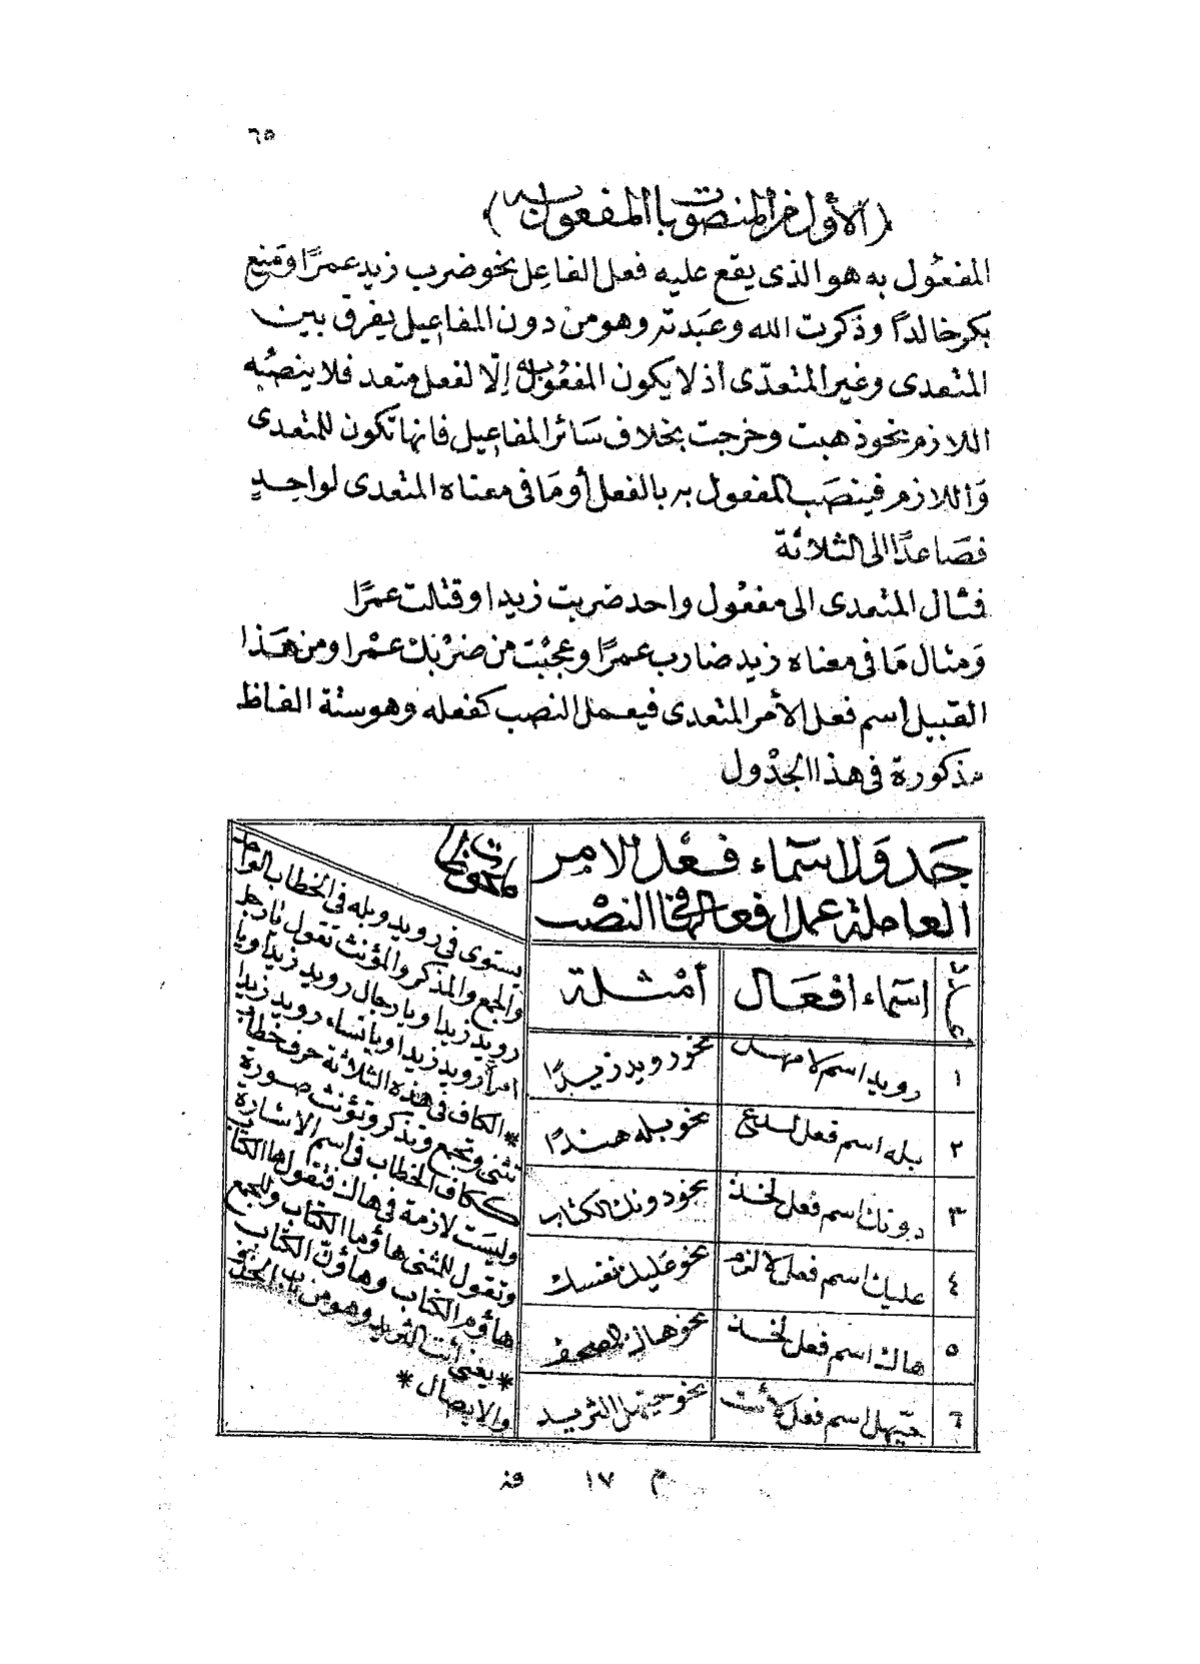 ٦٥
(الأول من المنصوبات المفعول به)
المفعول به هو الذى يقع عليه فعل الفاعل نحو ضرب زيد عمرًا ومنع
بكر خالدًا وذكرت الله وعبدته وهو من دون المفاعيل يفرق بين
المتعدى وغير المتعدّى أذ لا يكون المفعول به إلّا لفعل متعد فلا ينصبُه
اللازم نحو ذهبت وخرجت بخلاف سَائر المفاعيل فانها تكون للمتعدى
وَاللازم فينصَب المفعول به بالفعل أو مَا فى معناه المتعدى لواحدٍ
فصَاعدًا الى الثلاثة
فمثال المتعدى الى مفعُول واحد ضربت زيدا وقتلت عمرًا
وَمثال مَا فى معناه زيد ضارب عمرًا وعجبْت من ضرْبك عمْرا ومن هَذا
القبيل أسم فعل الأمر المتعدى فيعمل النصب كفعله وهو ستة الفاظ
مذكورة فى هذا الجدْول
جَدوَل اسمَاء فعْل الامر
العاملة عمل افعالها فى النصْب
اسمَاء افعَال
أمْثلة
١
رويد اسم لامهل
نحو رويد زيدًا
٢
بله اسم فعل لدع
نحو بله هندًا
٣
دونك اسم فعل لخذ
نحو دونك الكتاب
٤
عليك اسم فعل لالزم
نحو عليك نفسك
٥
هاك اسم فعل لخذ
نحو هاك المصحف
٦
حيّهل اسم فعل لأئت
نحو حيهل الثريد
يستوى فى رويد وبله فى الخطاب الواحد
والجمع والمذكر والمؤنث تقول يا رجل
رويد زيدا ويا رجال رويد زيدا ويا
امرأة رويد زيدا ويا نساء رويد زيدا
*الكاف فى هذه الثلاثة حرف خطاب
تثنى وتجمع وتذكر وتؤنث صورة
ككاف الخطاب فى اسم الاشارة
وليسَت لازمة فى هاك فتقول ها الكتاب
وتقول للمثنى هاؤما الكتاب وللجمع
هاؤم الكتاب وهاؤنّ الكتاب
*يعنى أئت الثريد وهو من باب الحذف
والايصال*
م ١٧